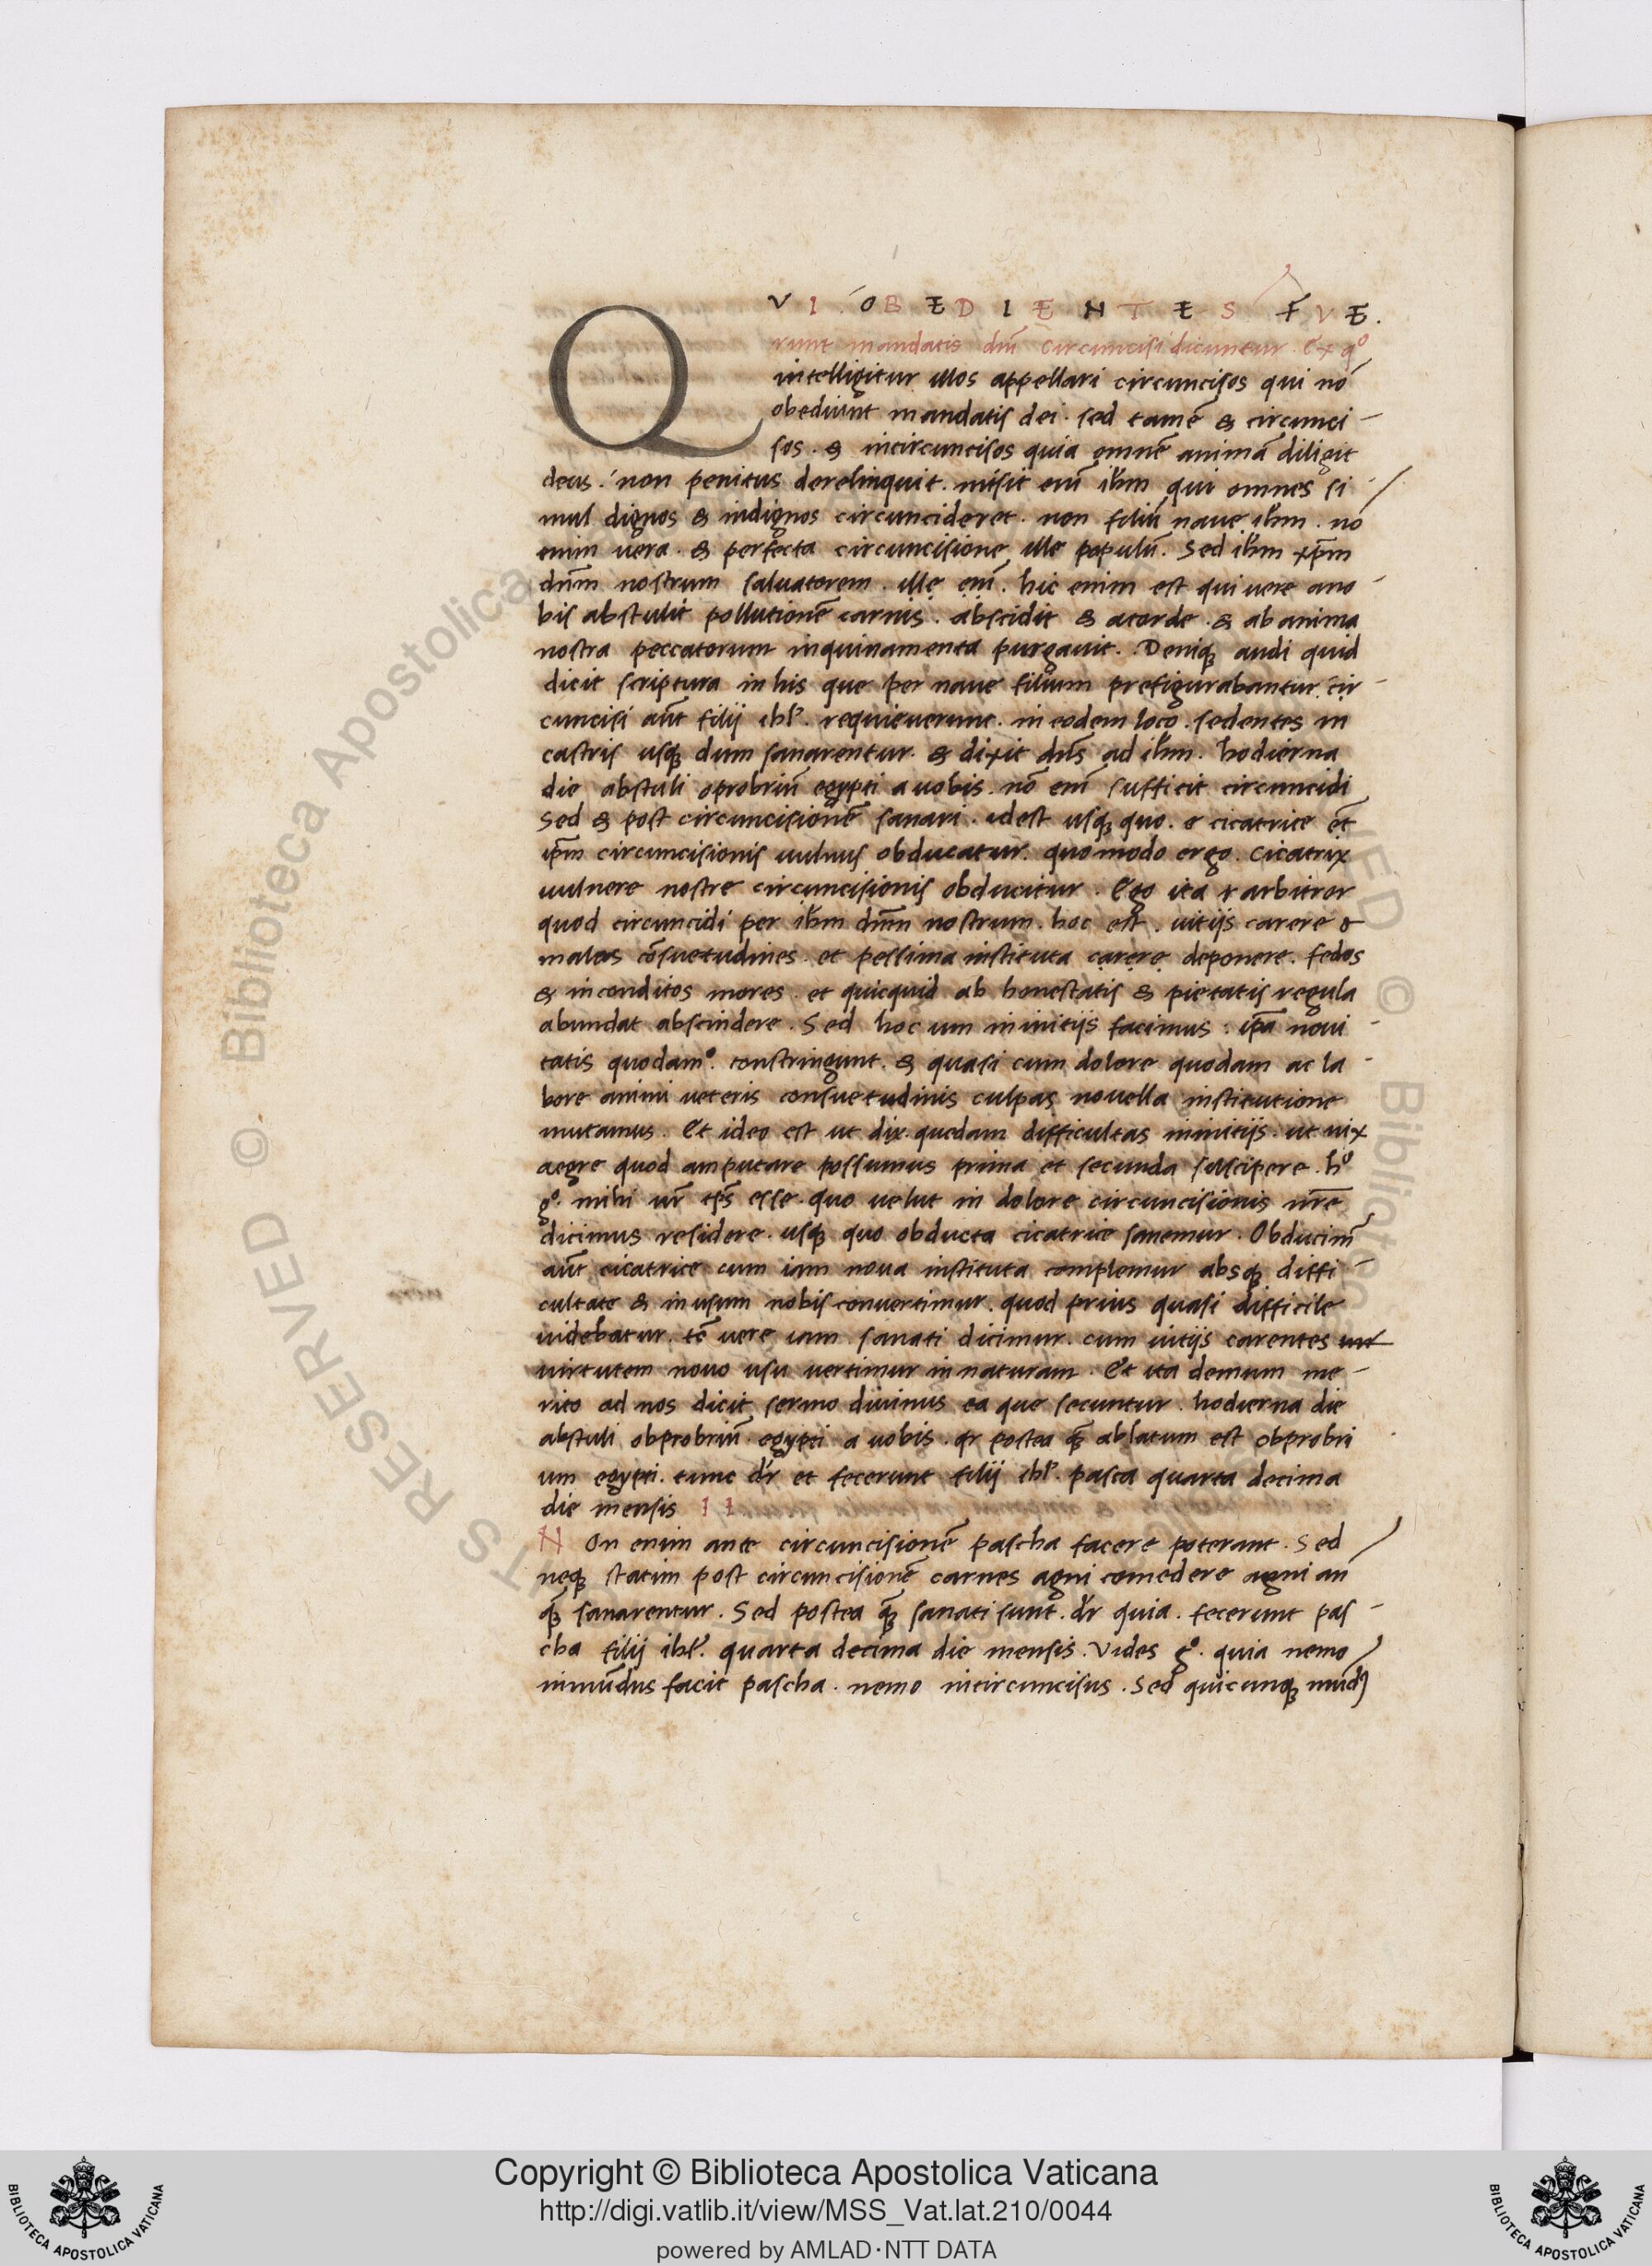 QVI OBEDIENTES FVE.
runt mandatis diui circuncisi dicuntur. Ex qº
intelligitur illos appellari circuncisos qui nō
obediunt mandatis dei. sed tamē & circunci-
sos. & incircuncisos quia omnē animā diligit
deus. non penitus derelinquit. misit enī ihm qui omnes si
mul dignos & indignos circuncideret. non filiū naue ihm. nō
enim uera. & perfecta circuncisione ille populū. Sed ihm xp̄m
dn̄m nostrum saluatorem. ille enī. hic enim est qui uere ano-
bis abstulit pollutionē carnis. abscidit & acorde. & ab anima
nostra peccatorum inquinamenta purgauit. Deniq; audi quid
dicit scriptura in his que per naue filium prefigurabantur. cir-
cuncisi aūt filij ihl'. requieuerunt. in eodem loco. sedentes in
castris usq; dum sanarentur. & dixit dn̄s ad ihm. hodierna
die abstuli oprobriū egypti a uobis. nō enī sufficit circuncidi
Sed & post circuncisionē sanari. idest usq; quo. e cicatrice et̄
ip̄m circuncisionis uulnus obducatur. quomodo ergo. cicatrix
uulnere nostre circuncisionis obducitur. Ego ita r arbitror
quod circuncidi per ihm dn̄m nostrum. hoc est. uitijs carere &
malas cōsuetudines. et pessima instituta carere deponere. fedos
& inconditos mores. et quicquid ab honestatis & pietatis regula
abundat abscindere. Sed hoc um in initijs facimus: ip̄a noui-
tatis quodamº. constringunt. & quasi cum dolore quodam ac la-
bore animi ueteris consuetudinis culpas nouella institutione
mutamus. Et ideo est ut dix. quedam difficultas in initijs. ut uix
aegre quod amputare possumus prima et secunda suscipere. hº
gº. mihi ur̄ tp̄s esse. quo uelut in dolore circuncisionis nr̄e
dicimus residere. usq; quo obducta cicatrice sanemur. Obducim'
aūt cicatrice cum iam noua instituta complemur absq; diffi-
cultate & in usum nobis conuertimur. quod prius quasi difficile
uidebatur. tc̄ uere iam sanati dicimur. cum uitijs carentes uir
uirtutem nouo usu uertimur in naturam. Et ita demum me-
rito ad nos dicit sermo diuinus ea que secuntur. hodierna die
abstuli obprobriū egypti a uobis. qr postea q̄; ablatum est obprobri
um egypti. tunc dr̄ et fecerunt filij ihl'. pasca quarta decima
die mensis II
NOn enim ante circuncisionē pascha facere poterant. Sed
neq; statim post circuncisionē carnes agni comedere agni an
q̄; sanarentur. Sed postea q̄; sanati sunt. dr̄ quia. fecerunt pas-
cha filij ihl'. quarta decima die mensis. Vides gº. quia nemo
inmūdus facit pascha. nemo incircuncisus. Sed quicunq; mūd9
Copyright © Biblioteca Apostolica Vaticana
http://digi.vatlib.it/view/MSS_Vat.lat.210/0044
powered by AMLAD·NTT DATA